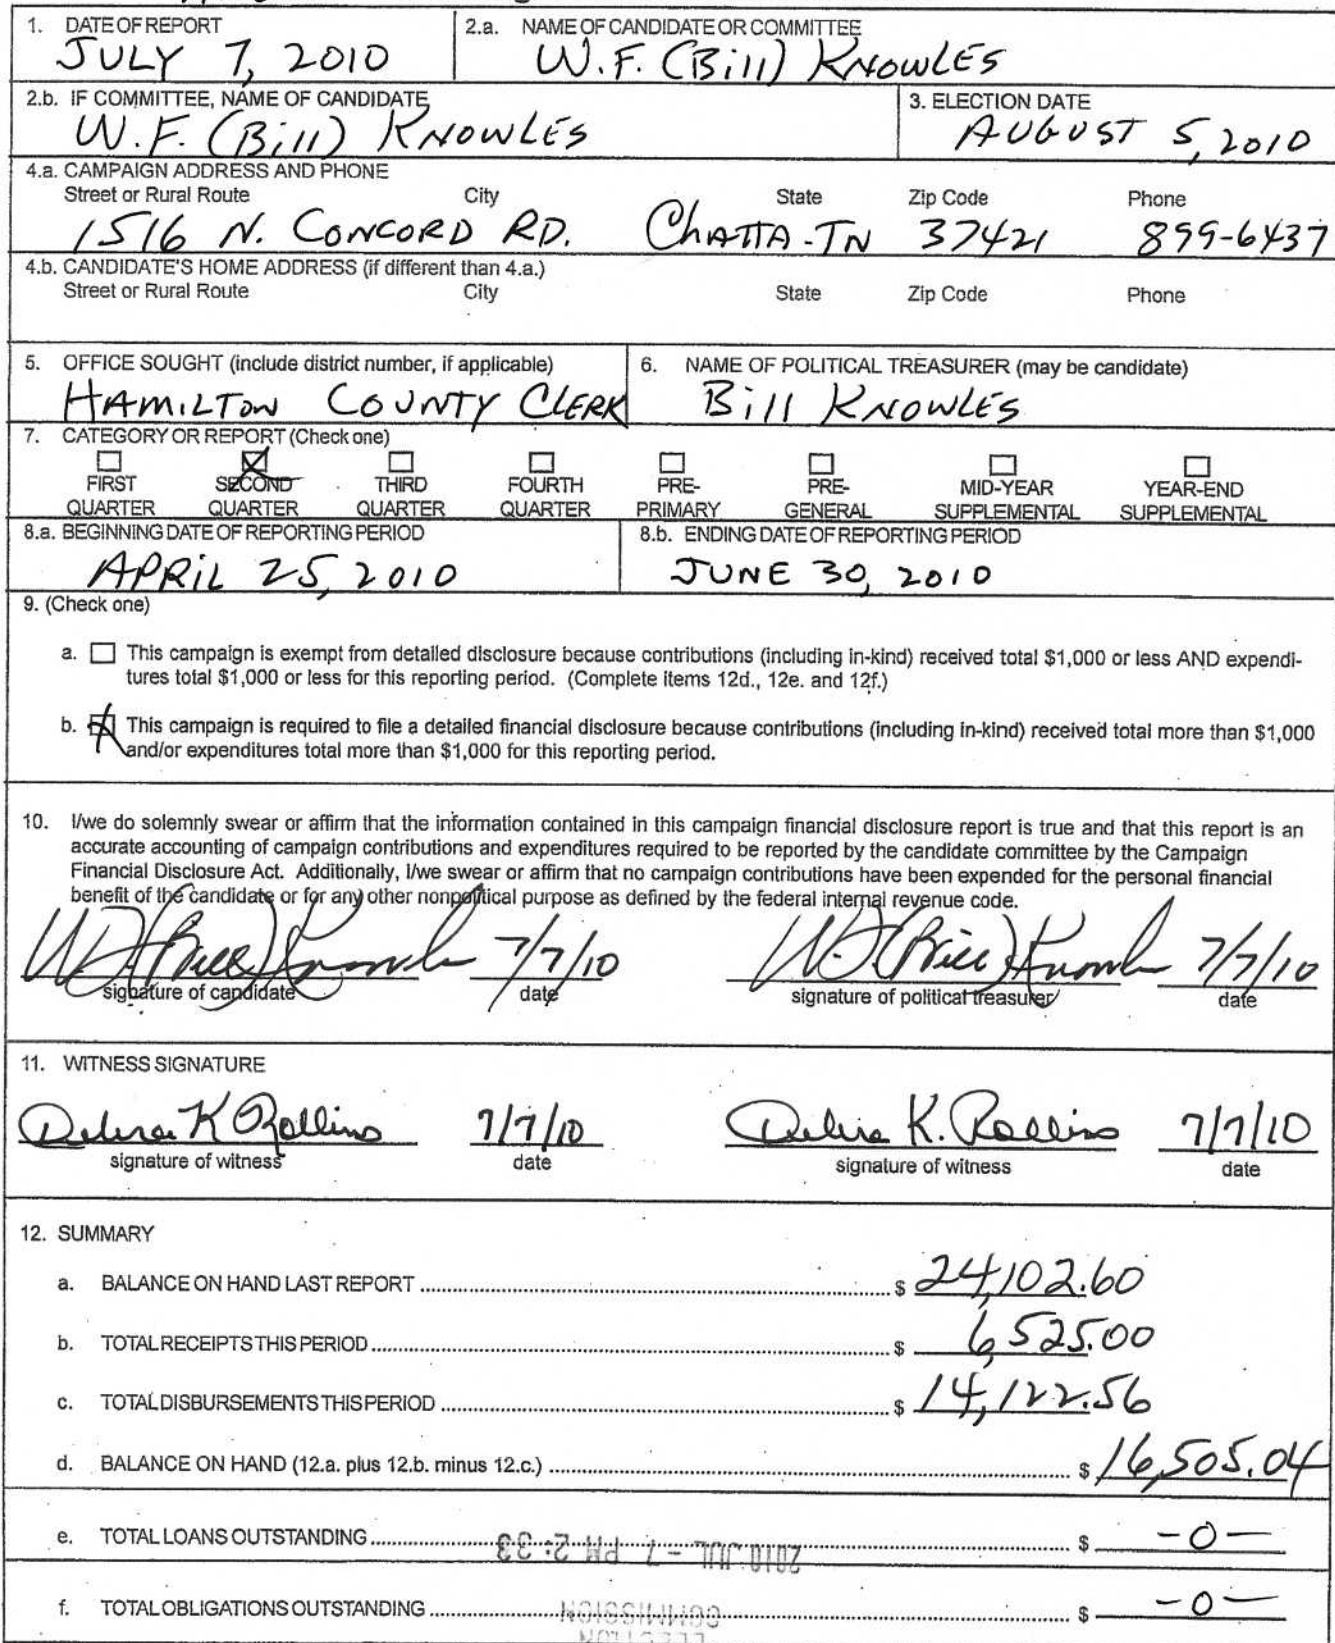 1. DATE OF REPORT
JULY 7, 2010
2.a. NAME OF CANDIDATE OR COMMITTEE
W.F. (Bill) KNOWLES
2.b. IF COMMITTEE, NAME OF CANDIDATE
W.F. (Bill) KNOWLES
3. ELECTION DATE
AUGUST 5, 2010
4.a. CAMPAIGN ADDRESS AND PHONE
Street or Rural Route City State Zip Code Phone
1516 N. CONCORD RD. ChATTA-TN 37421 899-6437
4.b. CANDIDATE'S HOME ADDRESS (if different than 4.a.)
Street or Rural Route City State Zip Code Phone
5. OFFICE SOUGHT (include district number, if applicable)
HAMILTON COUNTY CLERK
6. NAME OF POLITICAL TREASURER (may be candidate)
Bill KNOWLES
7. CATEGORY OR REPORT (Check one)
FIRST SECOND THIRD FOURTH PRE- PRE- MID-YEAR YEAR-END
QUARTER QUARTER QUARTER QUARTER PRIMARY GENERAL SUPPLEMENTAL SUPPLEMENTAL
8.a. BEGINNING DATE OF REPORTING PERIOD
APRIL 25, 2010
8.b. ENDING DATE OF REPORTING PERIOD
JUNE 30, 2010
9. (Check one)
a. This campaign is exempt from detailed disclosure because contributions (including in-kind) received total $1,000 or less AND expendi-
tures total $1,000 or less for this reporting period. (Complete items 12d., 12e. and 12f.)
b. This campaign is required to file a detailed financial disclosure because contributions (including in-kind) received total more than $1,000
and/or expenditures total more than $1,000 for this reporting period.
10. I/we do solemnly swear or affirm that the information contained in this campaign financial disclosure report is true and that this report is an
accurate accounting of campaign contributions and expenditures required to be reported by the candidate committee by the Campaign
Financial Disclosure Act. Additionally, I/we swear or affirm that no campaign contributions have been expended for the personal financial
benefit of the candidate or for any other nonpolitical purpose as defined by the federal internal revenue code.
W.F. (Bill) Knowles 7/7/10 W.F. (Bill) Knowles 7/7/10
signature of candidate date signature of political treasurer date
11. WITNESS SIGNATURE
Debra K Rollins 7/7/10 Debra K. Rollins 7/7/10
signature of witness date signature of witness date
12. SUMMARY
a. BALANCE ON HAND LAST REPORT $ 24,102.60
b. TOTAL RECEIPTS THIS PERIOD $ 6,525.00
c. TOTAL DISBURSEMENTS THIS PERIOD $ 14,122.56
d. BALANCE ON HAND (12.a. plus 12.b. minus 12.c.) $ 16,505.04
e. TOTAL LOANS OUTSTANDING $ -0-
2010 JUL -7 PM 2:33
f. TOTAL OBLIGATIONS OUTSTANDING $ -0-
COMMISSION
ELECTION